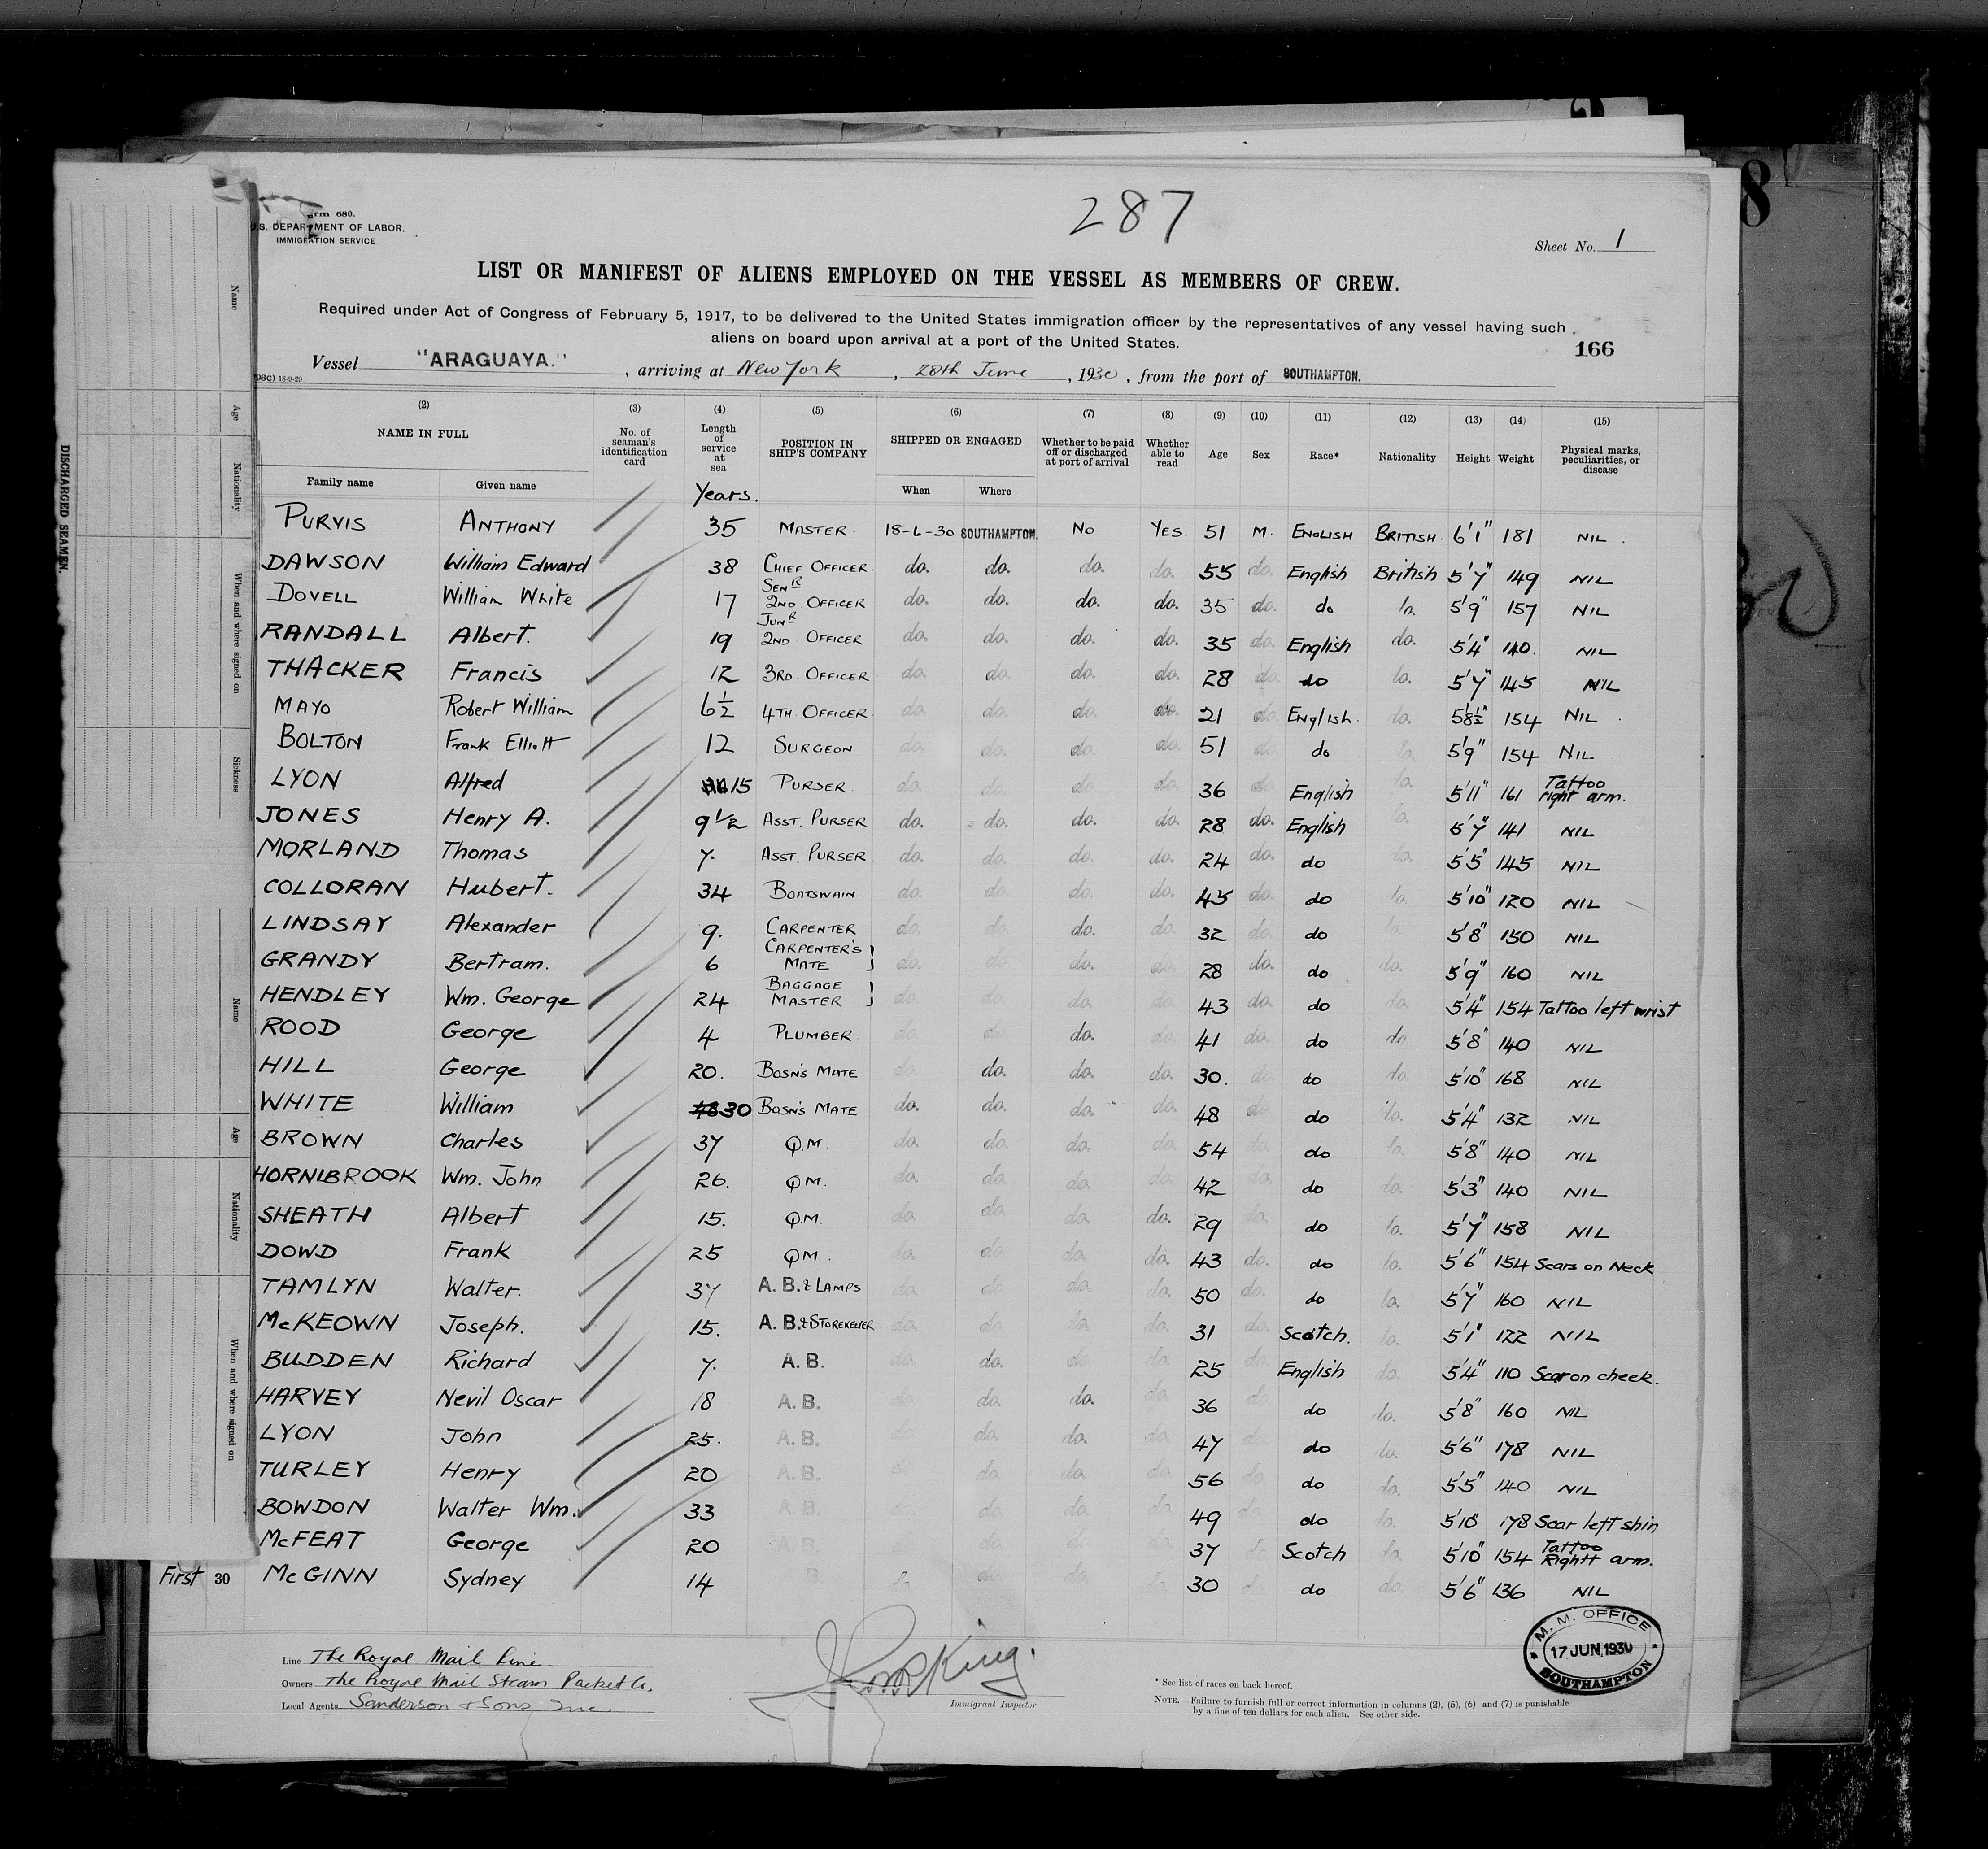 287
Form 680.
U.S. DEPARTMENT OF LABOR.
IMMIGRATION SERVICE
Sheet No. 1
LIST OR MANIFEST OF ALIENS EMPLOYED ON THE VESSEL AS MEMBERS OF CREW.
Required under Act of Congress of February 5, 1917, to be delivered to the United States immigration officer by the representatives of any vessel having such
aliens on board upon arrival at a port of the United States.
166
Vessel "ARAGUAYA." , arriving at New York , 28th June , 1930 , from the port of SOUTHAMPTON.
18-9-29
(2) (3) (4) (5) (6) (7) (8) (9) (10) (11) (12) (13) (14) (15)
NAME IN FULL No. of seaman's identification card Length of service at sea POSITION IN SHIP'S COMPANY SHIPPED OR ENGAGED Whether to be paid off or discharged at port of arrival Whether able to read Age Sex Race* Nationality Height Weight Physical marks, peculiarities, or disease
Family name Given name Years. When Where
PURVIS ANTHONY 35 MASTER. 18-6-30 SOUTHAMPTON. NO YES. 51 M. ENGLISH BRITISH. 6'1" 181 NIL.
DAWSON William Edward 38 CHIEF OFFICER. do. do. do. do. 55 do. English British 5'7" 149 NIL
DOVELL William White 17 SENR 2ND OFFICER do. do. do. do. 35 do. do do. 5'9" 157 NIL
RANDALL Albert. 19 JUNR 2ND OFFICER do. do. do. do. 35 do. English do. 5'4" 140. NIL
THACKER Francis 12 3RD. OFFICER do. do. do. do. 28 do. do do. 5'7" 145 NIL
MAYO Robert William 6½ 4TH OFFICER. do. do. do. do. 21 do. English. do. 5'8½" 154 NIL.
BOLTON Frank Elliott 12 SURGEON do. do. do. do. 51 do. do do. 5'9" 154 NIL
LYON Alfred 15 PURSER. do. do. do. do. 36 do. English do. 5'11" 161 Tattoo right arm.
JONES Henry A. 9½ ASST. PURSER do. do. do. do. 28 do. English do. 5'7" 141 NIL
MORLAND Thomas 7. ASST. PURSER. do. do. do. do. 24 do. do do. 5'5" 145 NIL
COLLORAN Hubert. 34 BOATSWAIN do. do. do. do. 45 do. do do. 5'10" 120 NIL
LINDSAY Alexander 9. CARPENTER do. do. do. do. 32 do. do do. 5'8" 150 NIL
GRANDY Bertram. 6 CARPENTER'S MATE do. do. do. do. 28 do. do do. 5'9" 160 NIL
HENDLEY Wm. George 24 BAGGAGE MASTER do. do. do. do. 43 do. do do. 5'4" 154 Tattoo left wrist
ROOD George 4 PLUMBER do. do. do. do. 41 do. do do 5'8" 140 NIL
HILL George 20. BOSN'S MATE do. do. do. do. 30. do. do do. 5'10" 168 NIL
WHITE William 30 BOSN'S MATE do. do. do. do. 48 do. do do. 5'4" 132 NIL
BROWN Charles 37 Q.M. do. do. do. do. 54 do. do do. 5'8" 140 NIL
HORNIBROOK Wm. John 26. QM. do. do. do. do. 42 do. do do. 5'3" 140 NIL
SHEATH Albert 15. Q.M. do. do. do. do. 29 do. do do. 5'7" 158 NIL
DOWD Frank 25 QM. do. do. do. do. 43 do. do do. 5'6" 154 Scars on Neck
TAMLYN Walter. 37 A.B. & LAMPS do. do. do. do. 50 do. do do. 5'7" 160 NIL
McKEOWN Joseph. 15. A.B. & STOREKEEPER do. do. do. do. 31 do. Scotch. do. 5'1" 122 NIL
BUDDEN Richard 7. A.B. do. do. do. do. 25 do. English do. 5'4" 110 Scar on cheek.
HARVEY Nevil Oscar 18 A.B. do. do. do. do. 36 do. do do. 5'8" 160 NIL
LYON John 25. A.B. do. do. do. do. 47 do. do do. 5'6" 178 NIL
TURLEY Henry 20 A.B. do. do. do. do. 56 do. do do. 5'5" 140 NIL
BOWDON Walter Wm. 33 A.B. do. do. do. 49 do. do do. 5'10" 178 Scar left shin
McFEAT George 20 A.B. do. do. do. 37 do. Scotch do. 5'10" 154 Tattoo Right arm.
First 30 McGINN Sydney 14 B. do. do. do. do. 30 do do. 5'6" 136 NIL
Line The Royal Mail Line
Owners The Royal Mail Steam Packet Co.
Local Agents Sanderson & Sons Inc
King.
Immigrant Inspector
* See list of races on back hereof.
NOTE.—Failure to furnish full or correct information in columns (2), (5), (6) and (7) is punishable
by a fine of ten dollars for each alien. See other side.
M. M. OFFICE
17 JUN 1930
SOUTHAMPTON
DISCHARGED SEAMEN.
Name
Age
Nationality
When and where signed on
Sickness
Name
Age
Nationality
When and where signed on
8